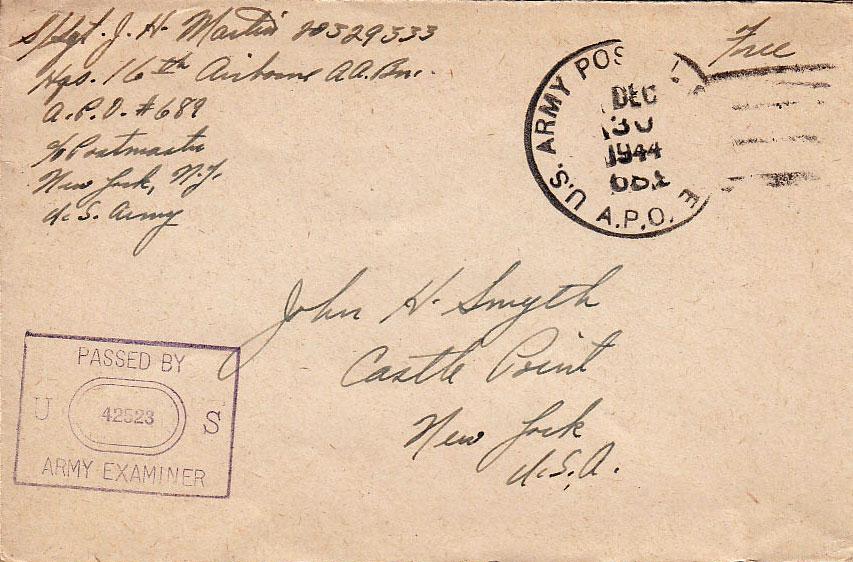 S/Sgt. J. H. Martin 20329333
Hqs. 16th Airborne AA. Bn.
A.P.O. #689
c/o Postmaster
New York, N.Y.
U.S. Army
Free
U.S. ARMY POS
DEC
30
1944
A.P.O.
John H. Smyth
Castle Point
New York
U.S.A.
PASSED BY
U 42523 S
ARMY EXAMINER